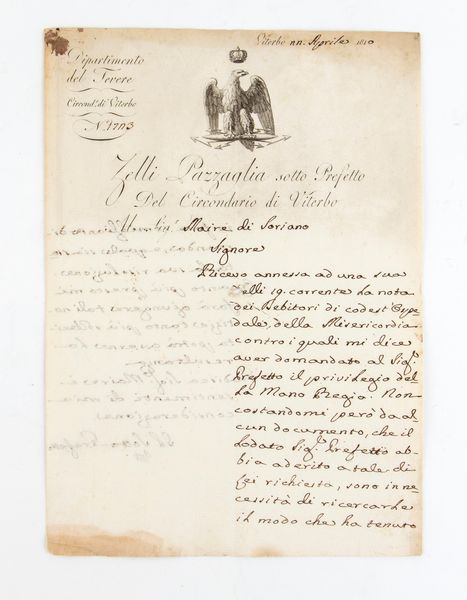 Viterbo nn. Aprile 1810
Dipartimento
del Tevere
Circond.º di Viterbo
N.º 1703
Zelli Pazzaglia sotto Prefetto
Del Circondario di Viterbo
Al Sig.r Maire di Soriano
Signore
Ricevo annessa ad una sua
elli 19. corrente la nota
dei Debitori di codest'Ospe
dale, della Misericordia
contro i quali mi dice
aver domandato al Sig.r
Prefetto il privilegio del
la Mano Regia. Non
costandomi però da al
cun documento, che il
Lodato Sig.r Prefetto ab
bia aderito a tale di
lei richiesta, sono in ne
cessità di ricercarle
il modo che ha tenuto